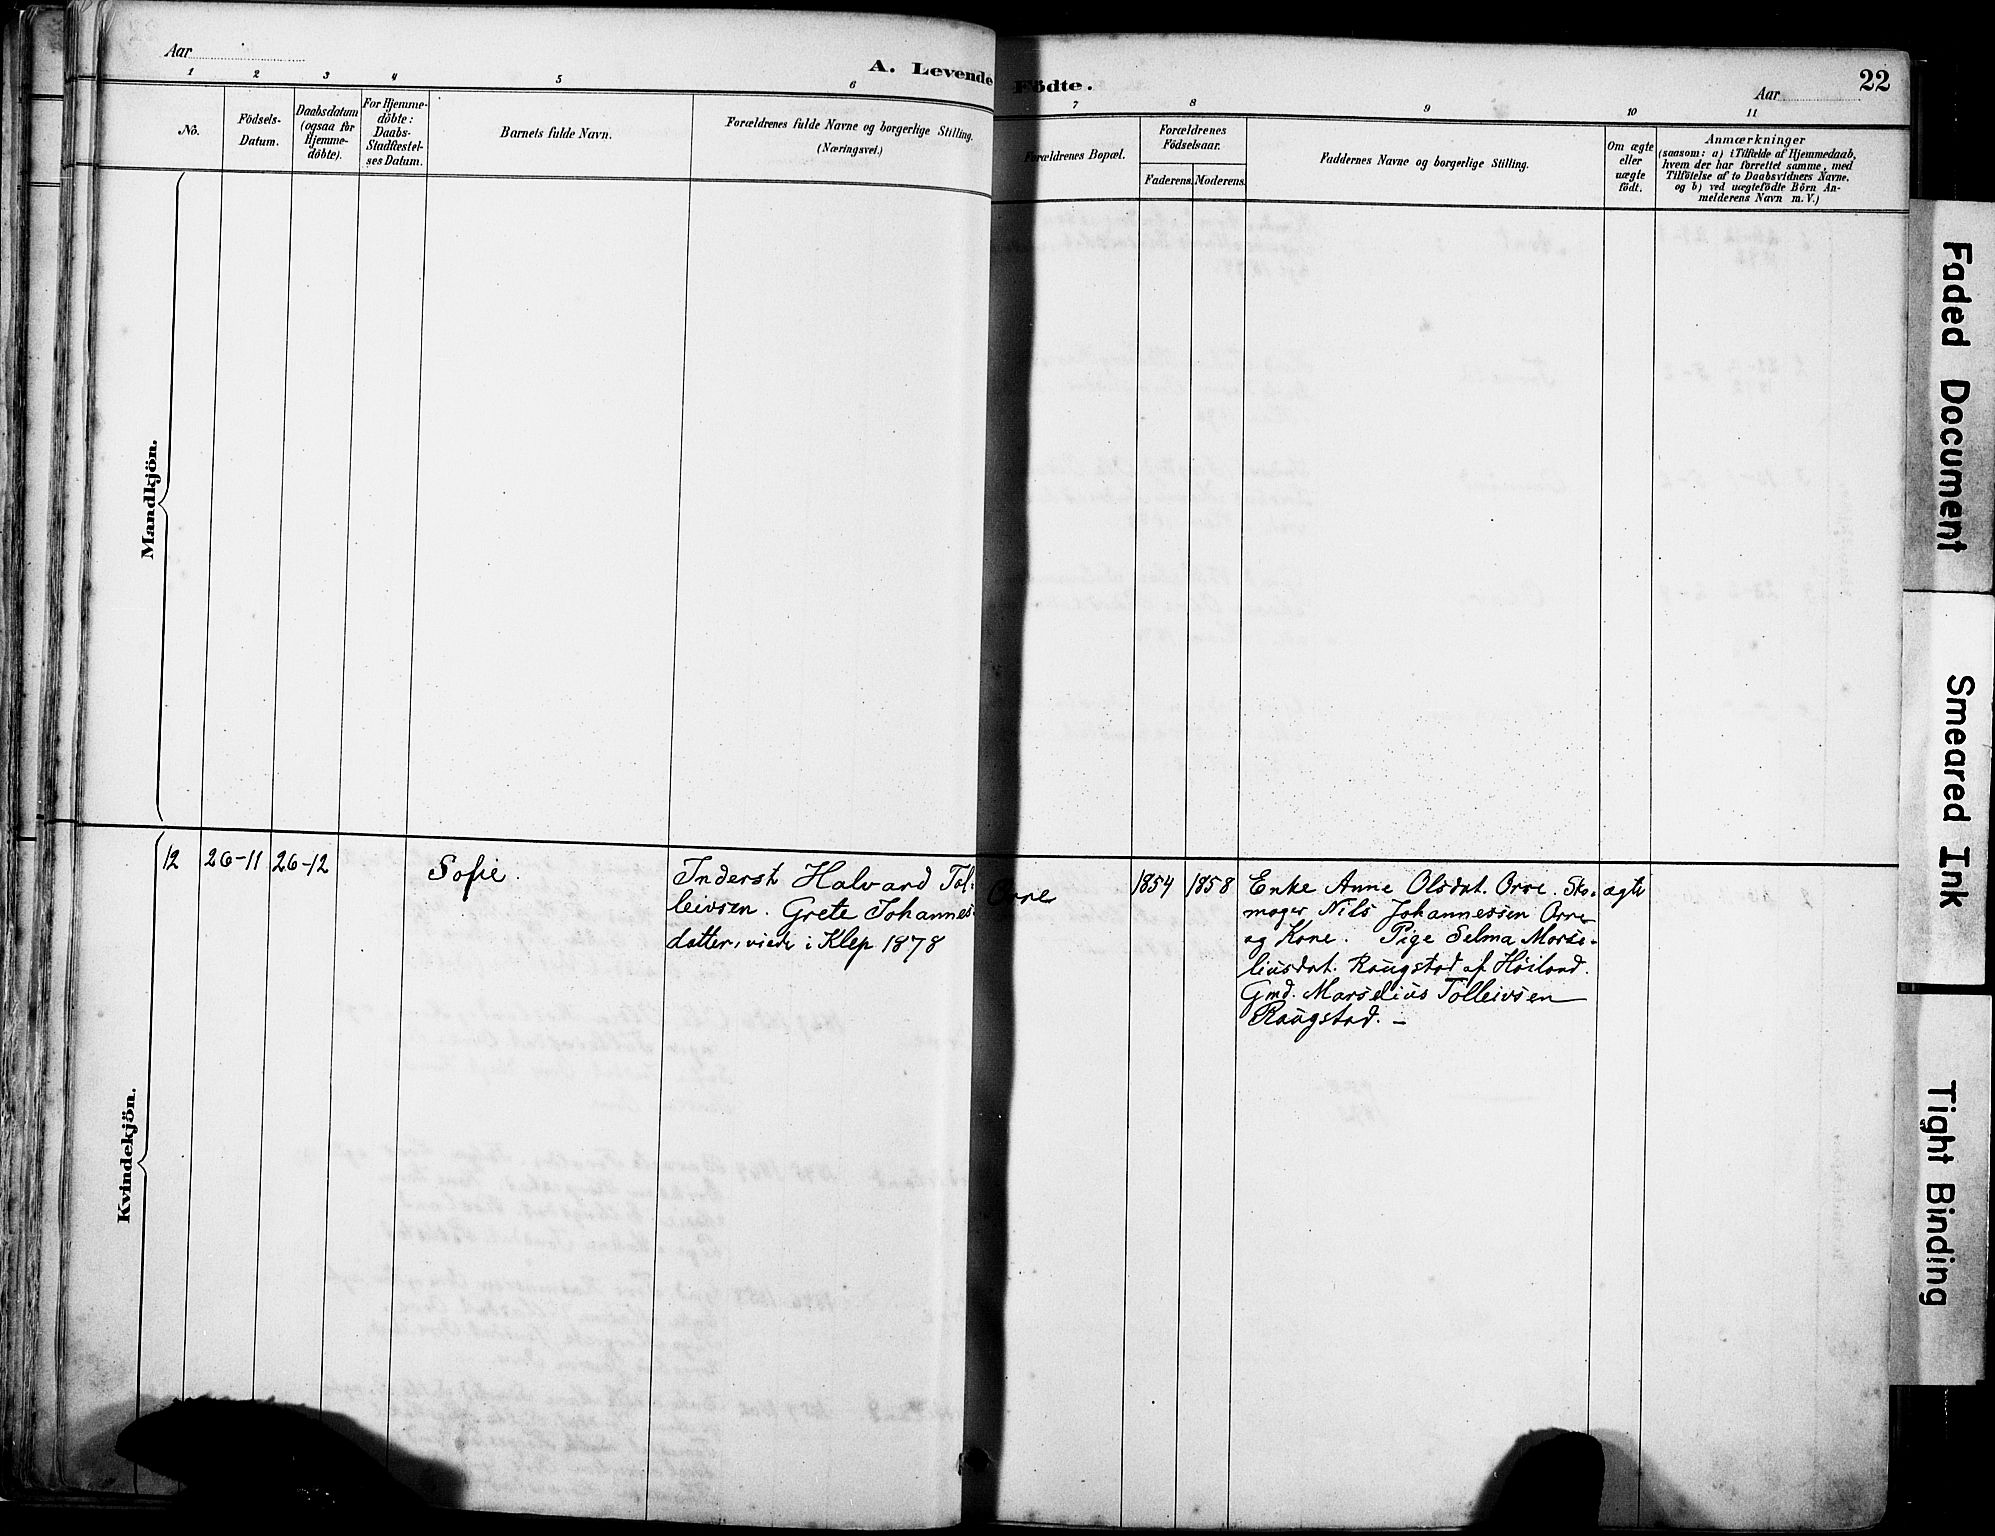 Aar
A. Levende Födte.
Aar
22
1 2 3 4 5 6 7 8 9 10 11
No.
Födsels-
Datum.
Daabsdatum
(ogsaa for
Hjemme-
döbte).
For Hjemme-
döbte:
Daabs-
Stadfæstel-
ses Datum.
Barnets fulde Navn.
Forældrenes fulde Navne og borgerlige Stilling.
(Næringsvei.)
Forældrenes Bopæl.
Forældrenes
Födselsaar.
Faderens. Moderens.
Faddernes Navne og borgerlige Stilling.
Om ægte
eller
uægte
födt.
Anmærkninger
(saasom: a) i Tilfælde af Hjemmedaab,
hvem der har forrettet samme, med
Tilföielse af to Daabsvidners Navne.
og b) ved uægtefödte Börn An-
melderens Navn m. V.)
Mandkjön.
Kvindekjön.
12
26-11
26-12
Sofie.
Inderst Halvard Tol-
leivsen. Grete Johannes-
datter, viede i Klep 1878
Orre
1854
1858
Enke Anne Olsdat. Orre. Sko-
mager Nils Johannessen Orre
og Kone. Pige Selma Marse-
liusdat. Raugstad af Höiland.
Gmd. Marselius Tolleivsen
Raugstad. -
ægte
Faded Document
Smeared Ink
Tight Binding